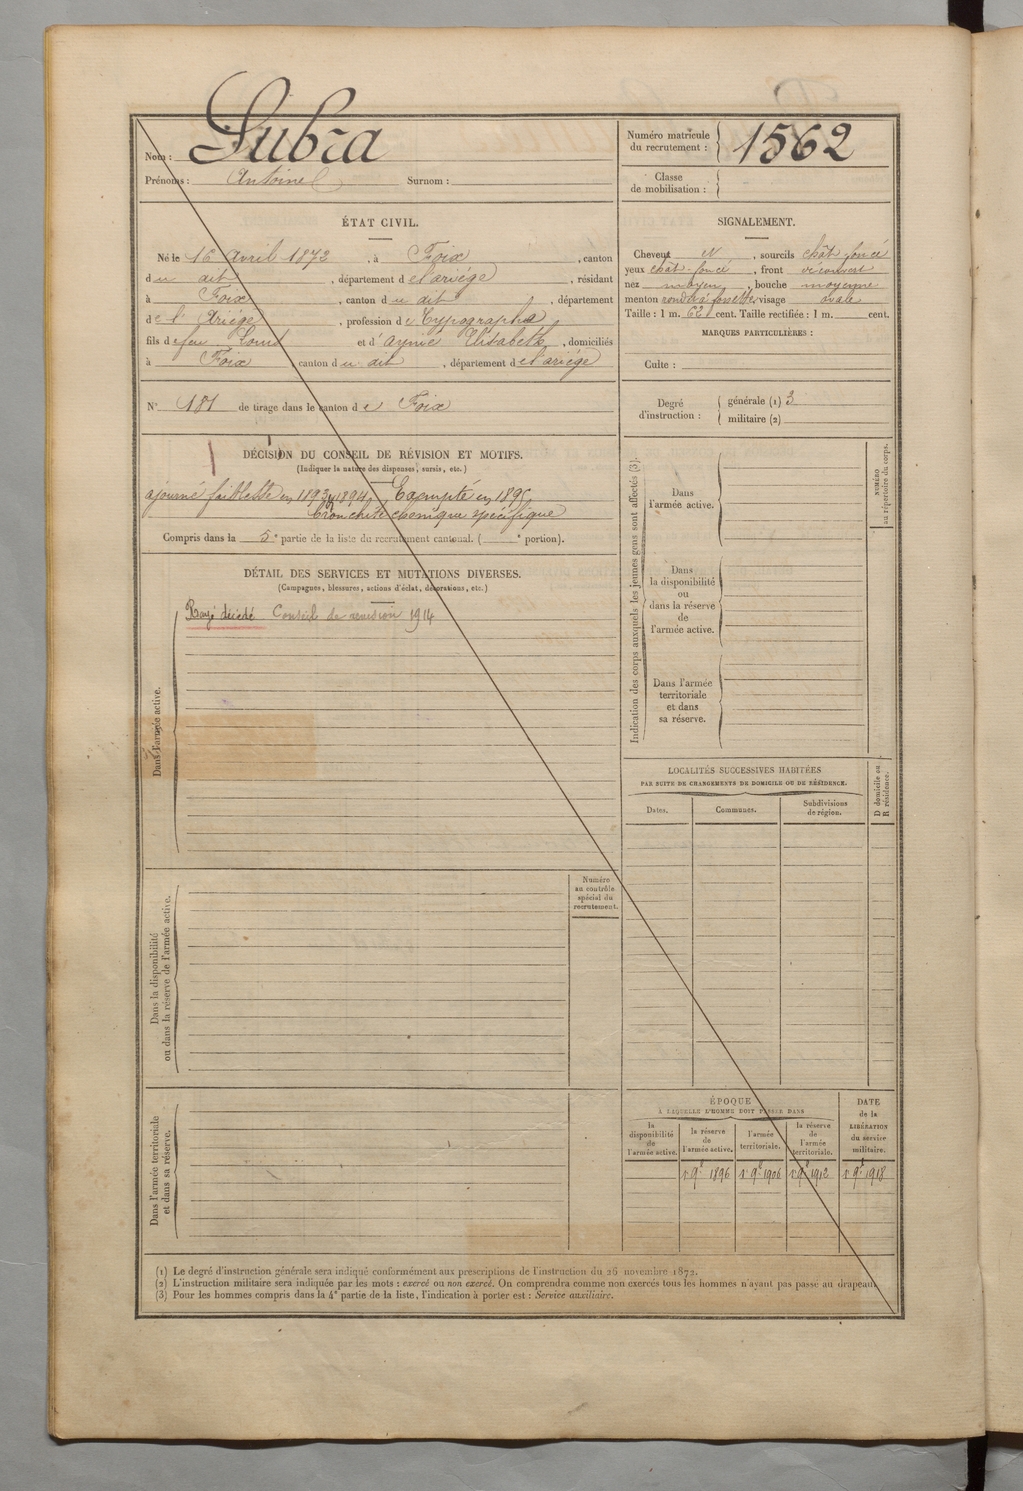 Nom : Subra
Prénoms : Antoine Surnom :
Numéro matricule du recrutement : 1562
Classe de mobilisation :
ÉTAT CIVIL.
Né le 16 Avril 1872, à Foix, canton
du dit, département de l'ariége, résidant
à Foix, canton du dit, département
de l'Ariége, profession de Typographe
fils de feu Louis et d'aymé Elisabeth, domiciliés
à Foix, canton du dit, département de l'ariége
N° 181 de tirage dans le canton de Foix
SIGNALEMENT.
Cheveux N, sourcils chât. foncé
yeux chât. foncé, front découvert
nez moyen, bouche moyenne
menton rond à fossette, visage ovale
Taille : 1 m. 62 cent. Taille rectifiée : 1 m. cent.
MARQUES PARTICULIÈRES :
Culte :
Degré d'instruction : générale (1) 3
militaire (2)
DÉCISION DU CONSEIL DE RÉVISION ET MOTIFS.
(Indiquer la nature des dispenses, sursis, etc.)
ajourné faiblesse en 1893, 1894, Exempté en 1895,
bronchite chonique spécifique
Compris dans la 5e partie de la liste du recrutement cantonal. ( e portion).
DÉTAIL DES SERVICES ET MUTATIONS DIVERSES.
(Campagnes, blessures, actions d'éclat, décorations, etc.)
Conseil de revision 1914
Dans l'armée active.
Dans la disponibilité
ou dans la réserve de l'armée active.
Numéro
au contrôle
spécial du
recrutement.
Dans l'armée territoriale
et dans sa réserve.
Indication des corps auxquels les jeunes gens sont affectés (3).
Dans
l'armée active.
Dans
la disponibilité
ou
dans la réserve
de
l'armée active.
Dans l'armée
territoriale
et dans
sa réserve.
NUMÉRO
au répertoire du corps.
LOCALITÉS SUCCESSIVES HABITÉES
PAR SUITE DE CHANGEMENTS DE DOMICILE OU DE RÉSIDENCE.
Dates. Communes. Subdivisions de région.
D domicile ou
R résidence.
ÉPOQUE
À LAQUELLE L'HOMME DOIT PASSER DANS
la disponibilité de l'armée active.
la réserve de l'armée active.
l'armée territoriale.
la réserve de l'armée territoriale.
DATE de la LIBÉRATION du service militaire.
1er 9bre 1896 1er 9bre 1906 1er 9bre 1912 1er 9bre 1918
(1) Le degré d'instruction générale sera indiqué conformément aux prescriptions de l'instruction du 26 novembre 1872.
(2) L'instruction militaire sera indiquée par les mots : exercé ou non exercé. On comprendra comme non exercés tous les hommes n'ayant pas passé au drapeau.
(3) Pour les hommes compris dans la 4e partie de la liste, l'indication à porter est : Service auxiliaire.